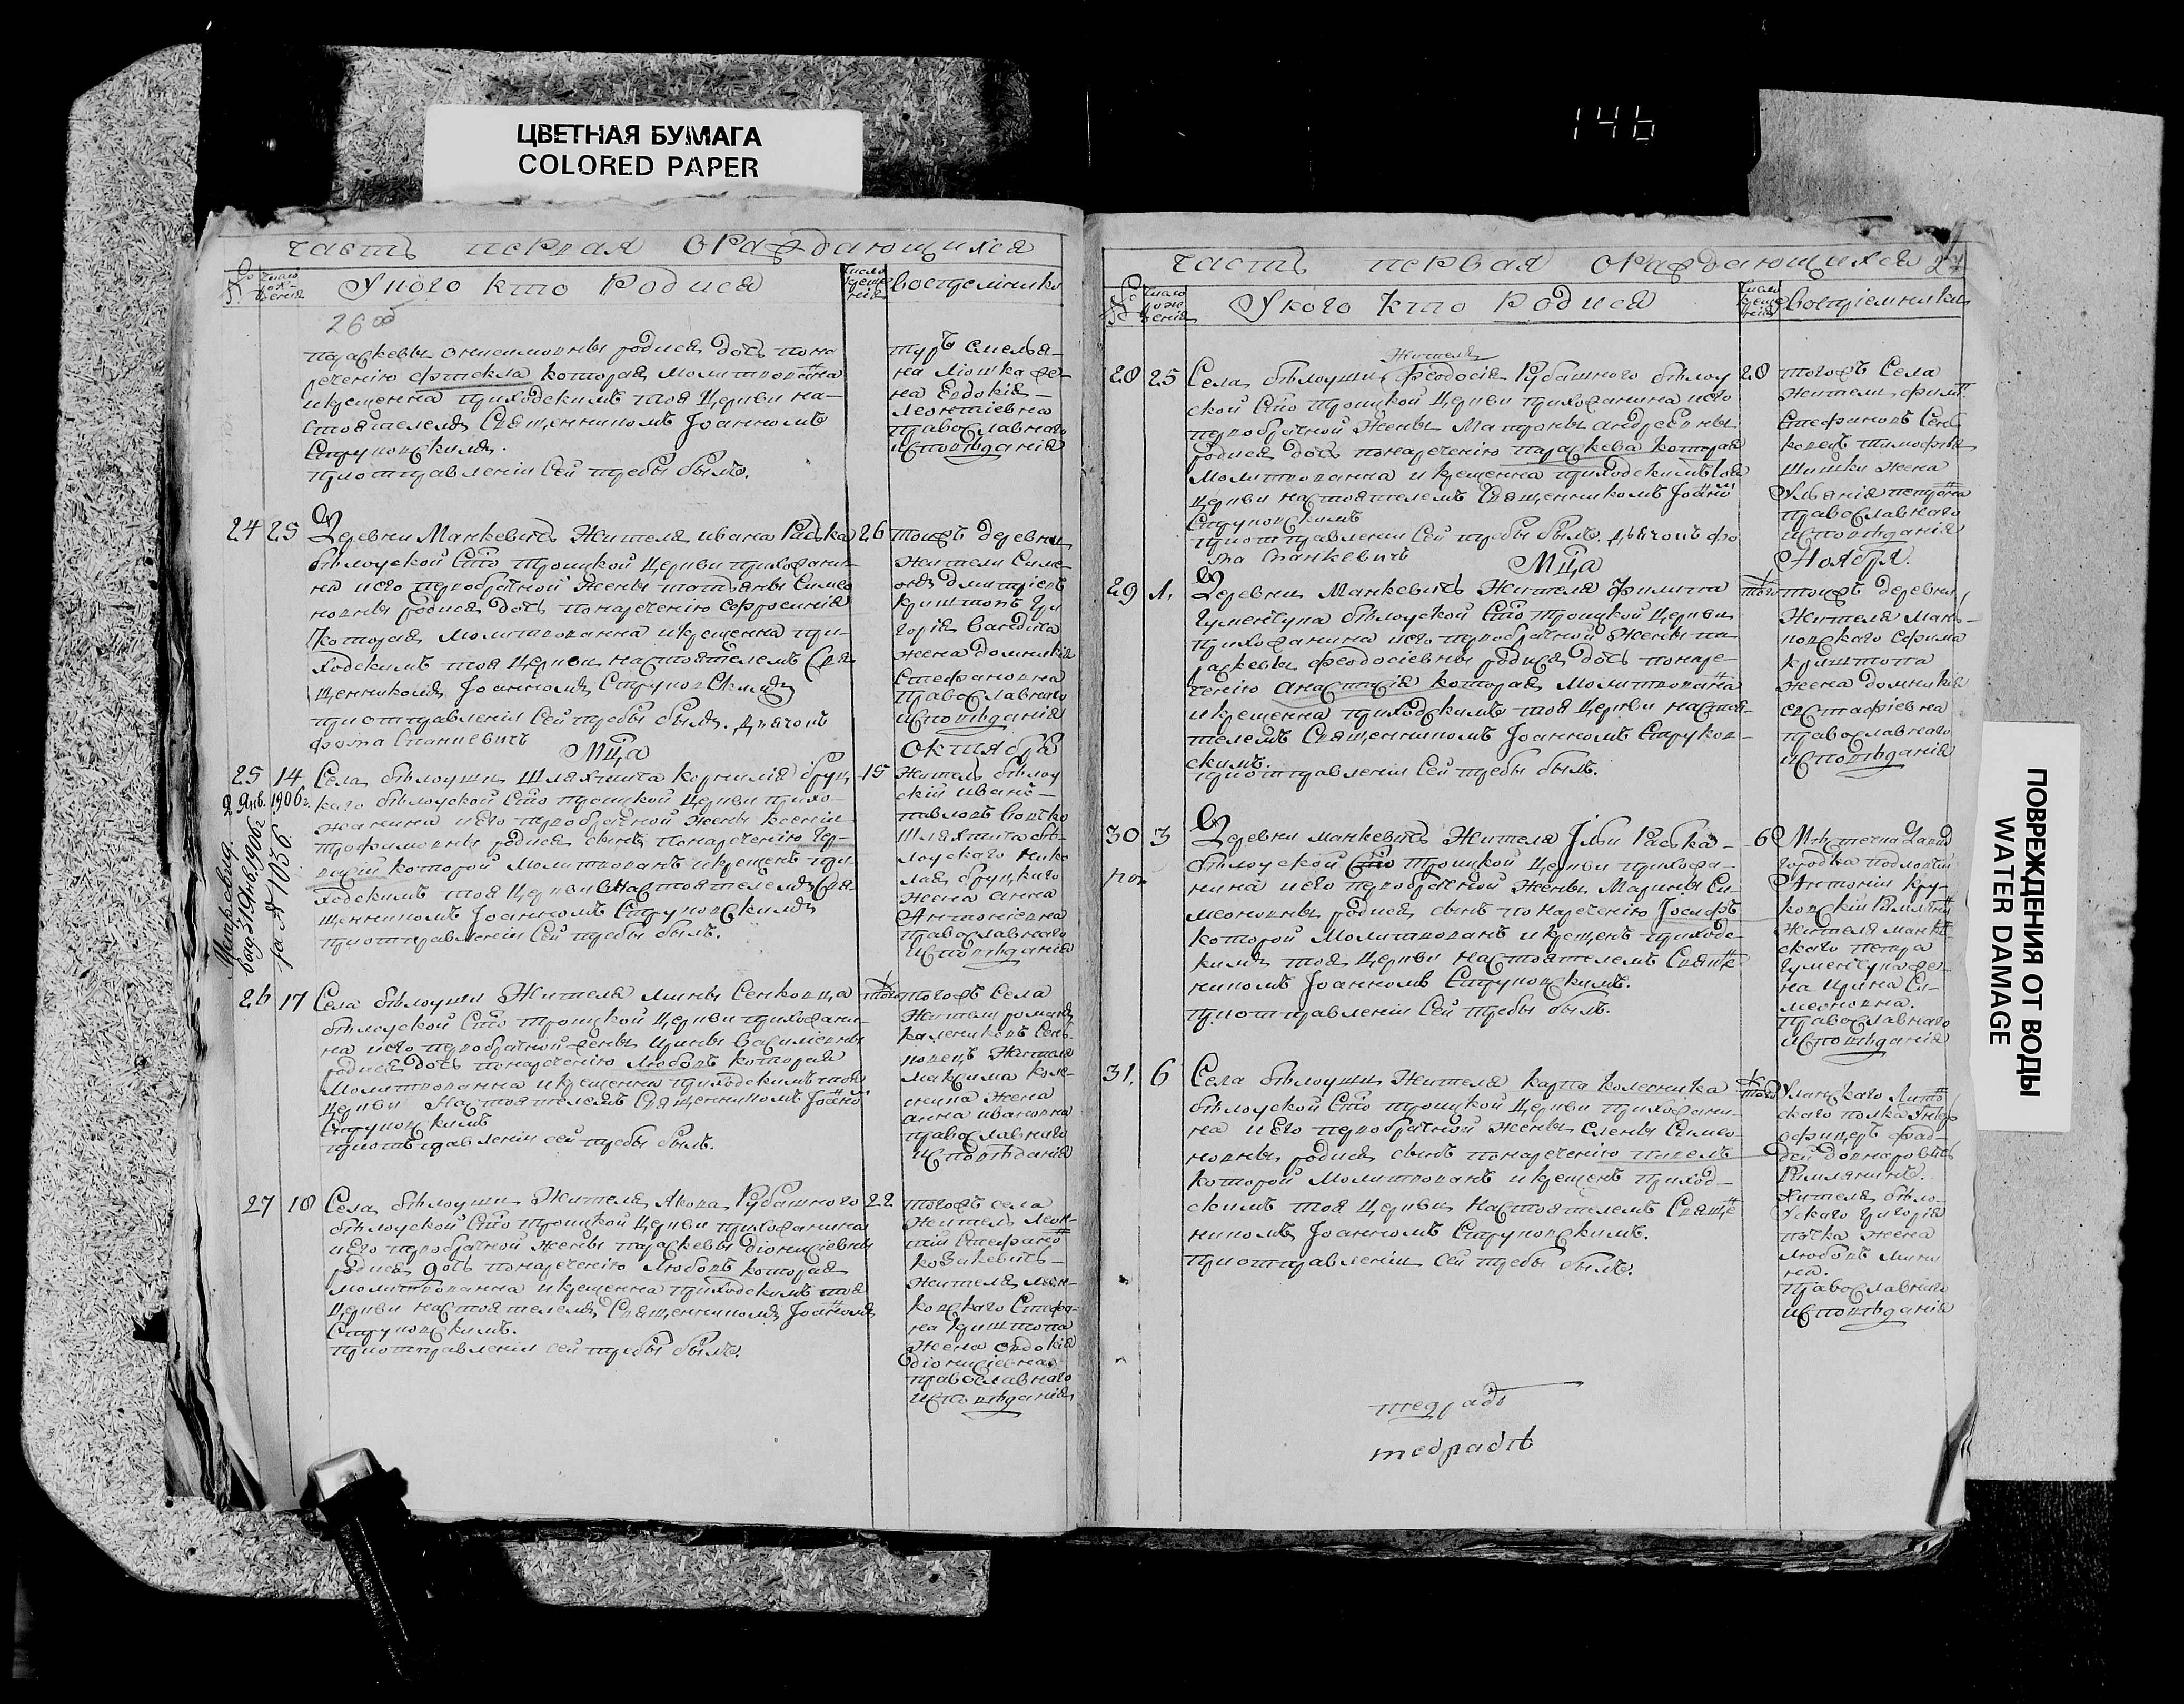 ЦВЕТНАЯ БУМАГА
COLORED PAPER
146
часть первая ораждающихся
число рож-дения
У кого кто Родися
число креще нія
воспріемники
26 об
параскевы родися дочь пона
речению фтекла которая молитвованна
и крещенна приходскимъ тоя Церкви на-
стоятелемъ Священникомъ Іоанномъ
Струковскимъ.
приотправленіи Сей требы былъ.
на Евдокія
Леонтіевна
православнаго
исповѣданія
24 25
Деревни Манкевичъ Жителя ивана Раска
бѣлоуской Сто Троицкой Церкви прихожани-
на и его первобрачной Жены татьяны Симео
новны родися дочь понаречению ефросинія
которая Молитвованна и крещенна при-
ходскимъ тоя Церкви настоятелемъ Свя
щенникомъ Іоанномъ Струковскимъ
приотправленіи Сей требы былъ. Дьячокъ
фома Станкевичъ
26
тоежъ деревни
жители Симе-
онъ дмитріевъ
криштопъ гри
горія
жена домникія
Стефановна
православнаго
исповѣданія
Мца
октября
25 14
2 Янв. 1906 г.
Метровид.
выд 319 Янв. 1906 г
за № 1056
Села бѣлоуши Шляхтича корнилія бруц
каго бѣлоуской Сто троицкой Церкви прихо-
жанина и его первобрачной жены ксеніи
трофимовны родися сынъ понаречению
которой Молитвованъ и крещенъ при-
ходскимъ тоя Церкви Настоятелемъ Свя-
щенникомъ Іоанномъ Струковскимъ
приотправленіи Сей требы былъ.
15
Житель бѣлоу
скій иванъ
павловъ
Шляхтича бѣ-
лоускаго Нико
лая бруцкаго
жена анна
Антоніевна
православнаго
исповѣданія
26 17
Села бѣлоуши Жителя мины Сенковца
бѣлоуской Сто Троицкой Церкви прихожани-
на и его первобрачной жены ирины
родися дочь понаречению Любовь которая
Молитвованна и крещенна приходскимъ тоя
Церкви Настоятелемъ Священникомъ Іоанно
Струковскимъ
приотправленіи сей требы былъ.
тогожъ Села
Жители романъ
Сен-
ковецъ Жителя
Максима коле-
сника жена
анна ивановна
православнаго
исповѣданія
27 18
Села бѣлоуши Жителя Якова Рубашного
бѣлоуской Сто Троицкой Церкви прихожанина
и его первобрачной жены параскевы діонисіевны
родися дочь понаречению Любовь которая
молитвованна и крещенна приходскимъ тоя
Церкви настоятелемъ Священникомъ Іоанномъ
Струковскимъ.
приотправленіи сей требы былъ.
22
тогожъ села
житель Леон-
тій Стефано
козикевичъ
жителя ман-
ковскаго Стефа-
на криштопа
жена евдокія
діонисіевна
православнаго
исповѣданія
часть первая ораждающихся 27
число рож дения
У кого кто Родися
число креще нія
воспріемники
28 25
жителя
Села бѣлоуши Феодосія Рубашного бѣлоу
ской Сто троицкой Церкви прихожанина и его
первобрачной Жены Матроны андреевны
родися дочь понаречению параскева которая
Молитвованна и крещенна приходскимъ тоя
Церкви настоятелемъ Священникомъ Іоанно
Струковскимъ
приотправленіи Сей требы былъ. Дьячокъ фо
ма Станкевичъ
28
тогожъ Села
жители
Стефановъ Сен
ковецъ тимофея
Шишки жена
православнаго
исповѣданія
Мца
Ноября.
29 1.
Деревни Манкевичъ Жителя филипа
Гуменчука бѣлоуской Сто троицкой Церкви
прихожанина и его первобрачной Жены па
раскевы феодосіевны родися дочь понаре-
чению анастасія которая Молитвованна
и крещенна приходскимъ тоя Церкви настоя-
телемъ Священникомъ Іоанномъ Струков-
скимъ.
приотправленіи Сей требы былъ.
тоежъ деревни
ЖителяМан-
ковскаго ефима
криштопа
жена домникія
евстафіевна
православнаго
исповѣданія
30 3
Деревни манкевичъ Жителя Ільи Раска
бѣлоуской Сто троицкой Церкви прихожа-
нина и его первобрачной Жены Марины Си-
меоновны родися сынъ понаречению Іосифъ
которой Молитвованъ и крещенъ приходс-
кимъ тоя Церкви настоятелемъ Свяще
никомъ Іоанномъ Струковскимъ.
приотправленіи Сей требы былъ.
6
Мѣстечка Давид
городка
Антоній кру-
Жителя манке-
скаго петра
Гуменчука же-
на ирина Си-
меоновна.
православнаго
исповѣданія
31. 6
Села бѣлоуши Жителя карпа колесника
бѣлоуской Сто троицкой Церкви прихожани-
на и Его первобрачной жены елены Симео
новны родися сынъ понаречению павелъ
которой Молитвованъ и крещенъ приход-
скимъ тоя Церкви Настоятелемъ Свяще
никомъ Іоанномъ Струковскимъ.
приотправленіи сей требы былъ.
скаго полка Унтер
офицеръ фад-
дей
Римлянинъ.
жителя бѣло-
ускаго григорія
жена
Любовь
православнаго
исповѣданія
тедрадь
тедрадь
ПОВРЕЖДЕНИЯ ОТ ВОДЫ
WATER DAMAGE